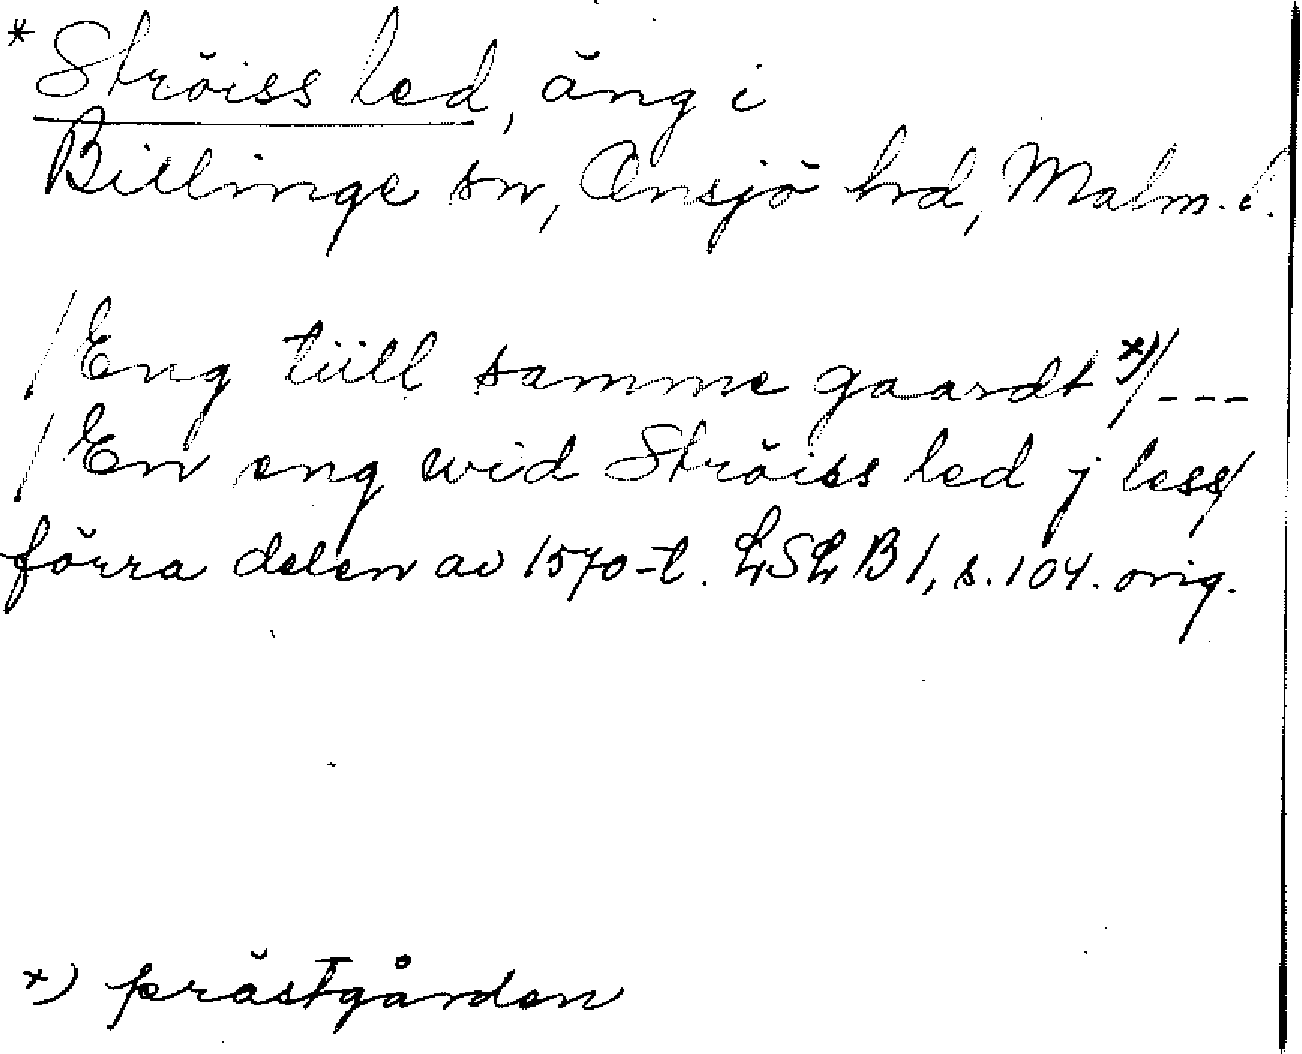 * Ströiss led, äng i
Billinge sn, Onsjö hd, Malm. l.
/Eng tiill samme gaardt *)/---
/En eng wid Ströiss led j less/
förra delen av 1570-t. LSLB1, s. 104. orig.
*) prästgården